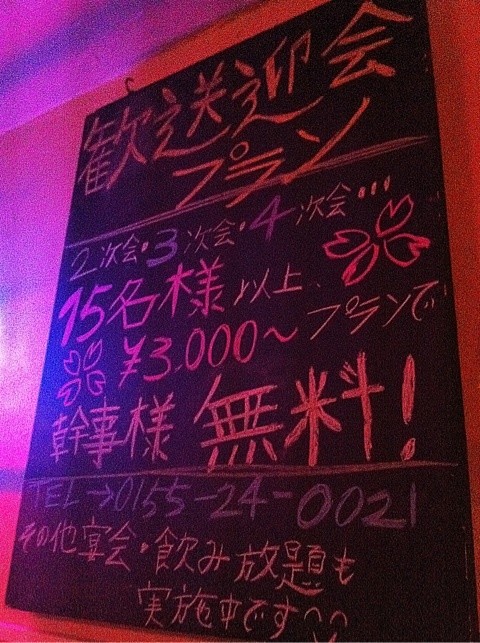 歓送迎会
プラン
2次会・3次会・4次会・・・
15名様以上、
¥3,000〜プランで
幹事様 無料!
TEL→0155-24-0021
その他宴会・飲み放題も
実施中です^^